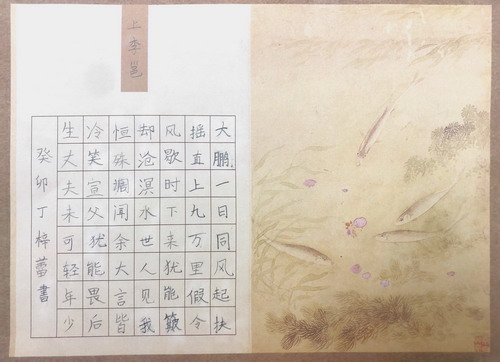 上李邕
大鹏一日同风起扶
摇直上九万里假令
风歇时下来犹能簸
却沧溟水世人见我
恒殊调闻余大言皆
冷笑宣父犹能畏后
生丈夫未可轻年少
癸卯丁梓蕾書